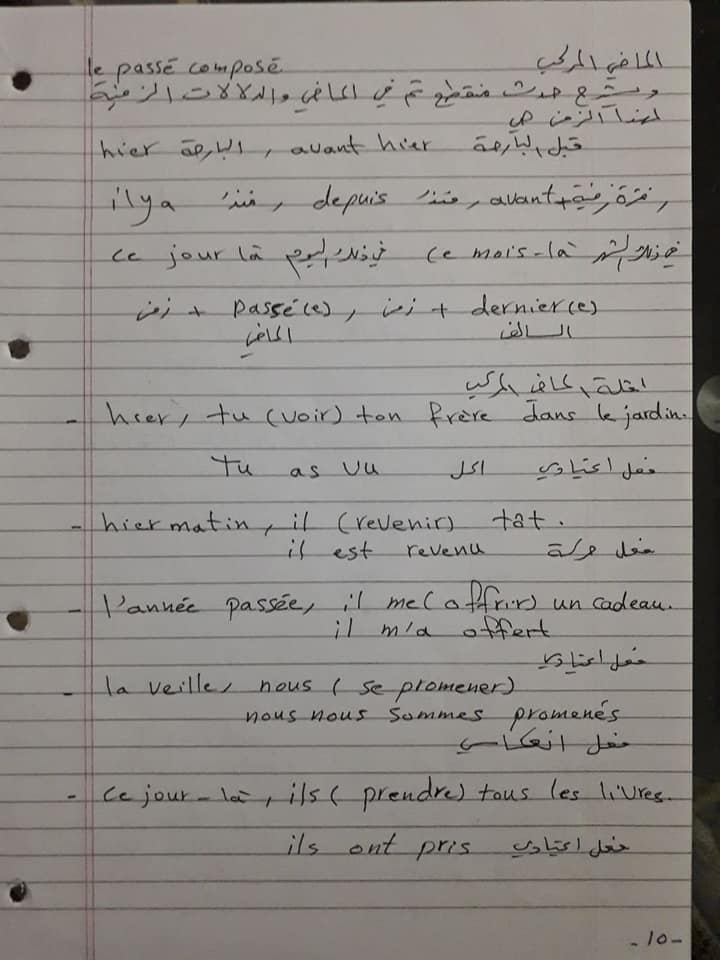 le passé composé الماضي المركب
ويشرح حدث منقطع تم في الماضي والدلالات الزمنية
لهذا الزمن هي
hier البارحة , avant hier قبل البارحة
il y a منذ , depuis منذ , avant + فترة زمنية ,
ce jour là في ذلك اليوم ce mois-là في ذلك الشهر
زمن + passé(e) , زمن + dernier(e)
الماضي السالف
امثلة الماضي المركب
- hier, tu (voir) ton frère dans le jardin.
tu as vu فعل اعتيادي
- hier matin, il (revenir) tôt.
il est revenu فعل حركة
- l'année passée, il me (offrir) un cadeau.
il m'a offert
فعل اعتيادي
- la veille, nous (se promener)
nous nous sommes promenés
فعل انعكاسي
- ce jour-là, ils (prendre) tous les livres.
ils ont pris فعل اعتيادي
-10-